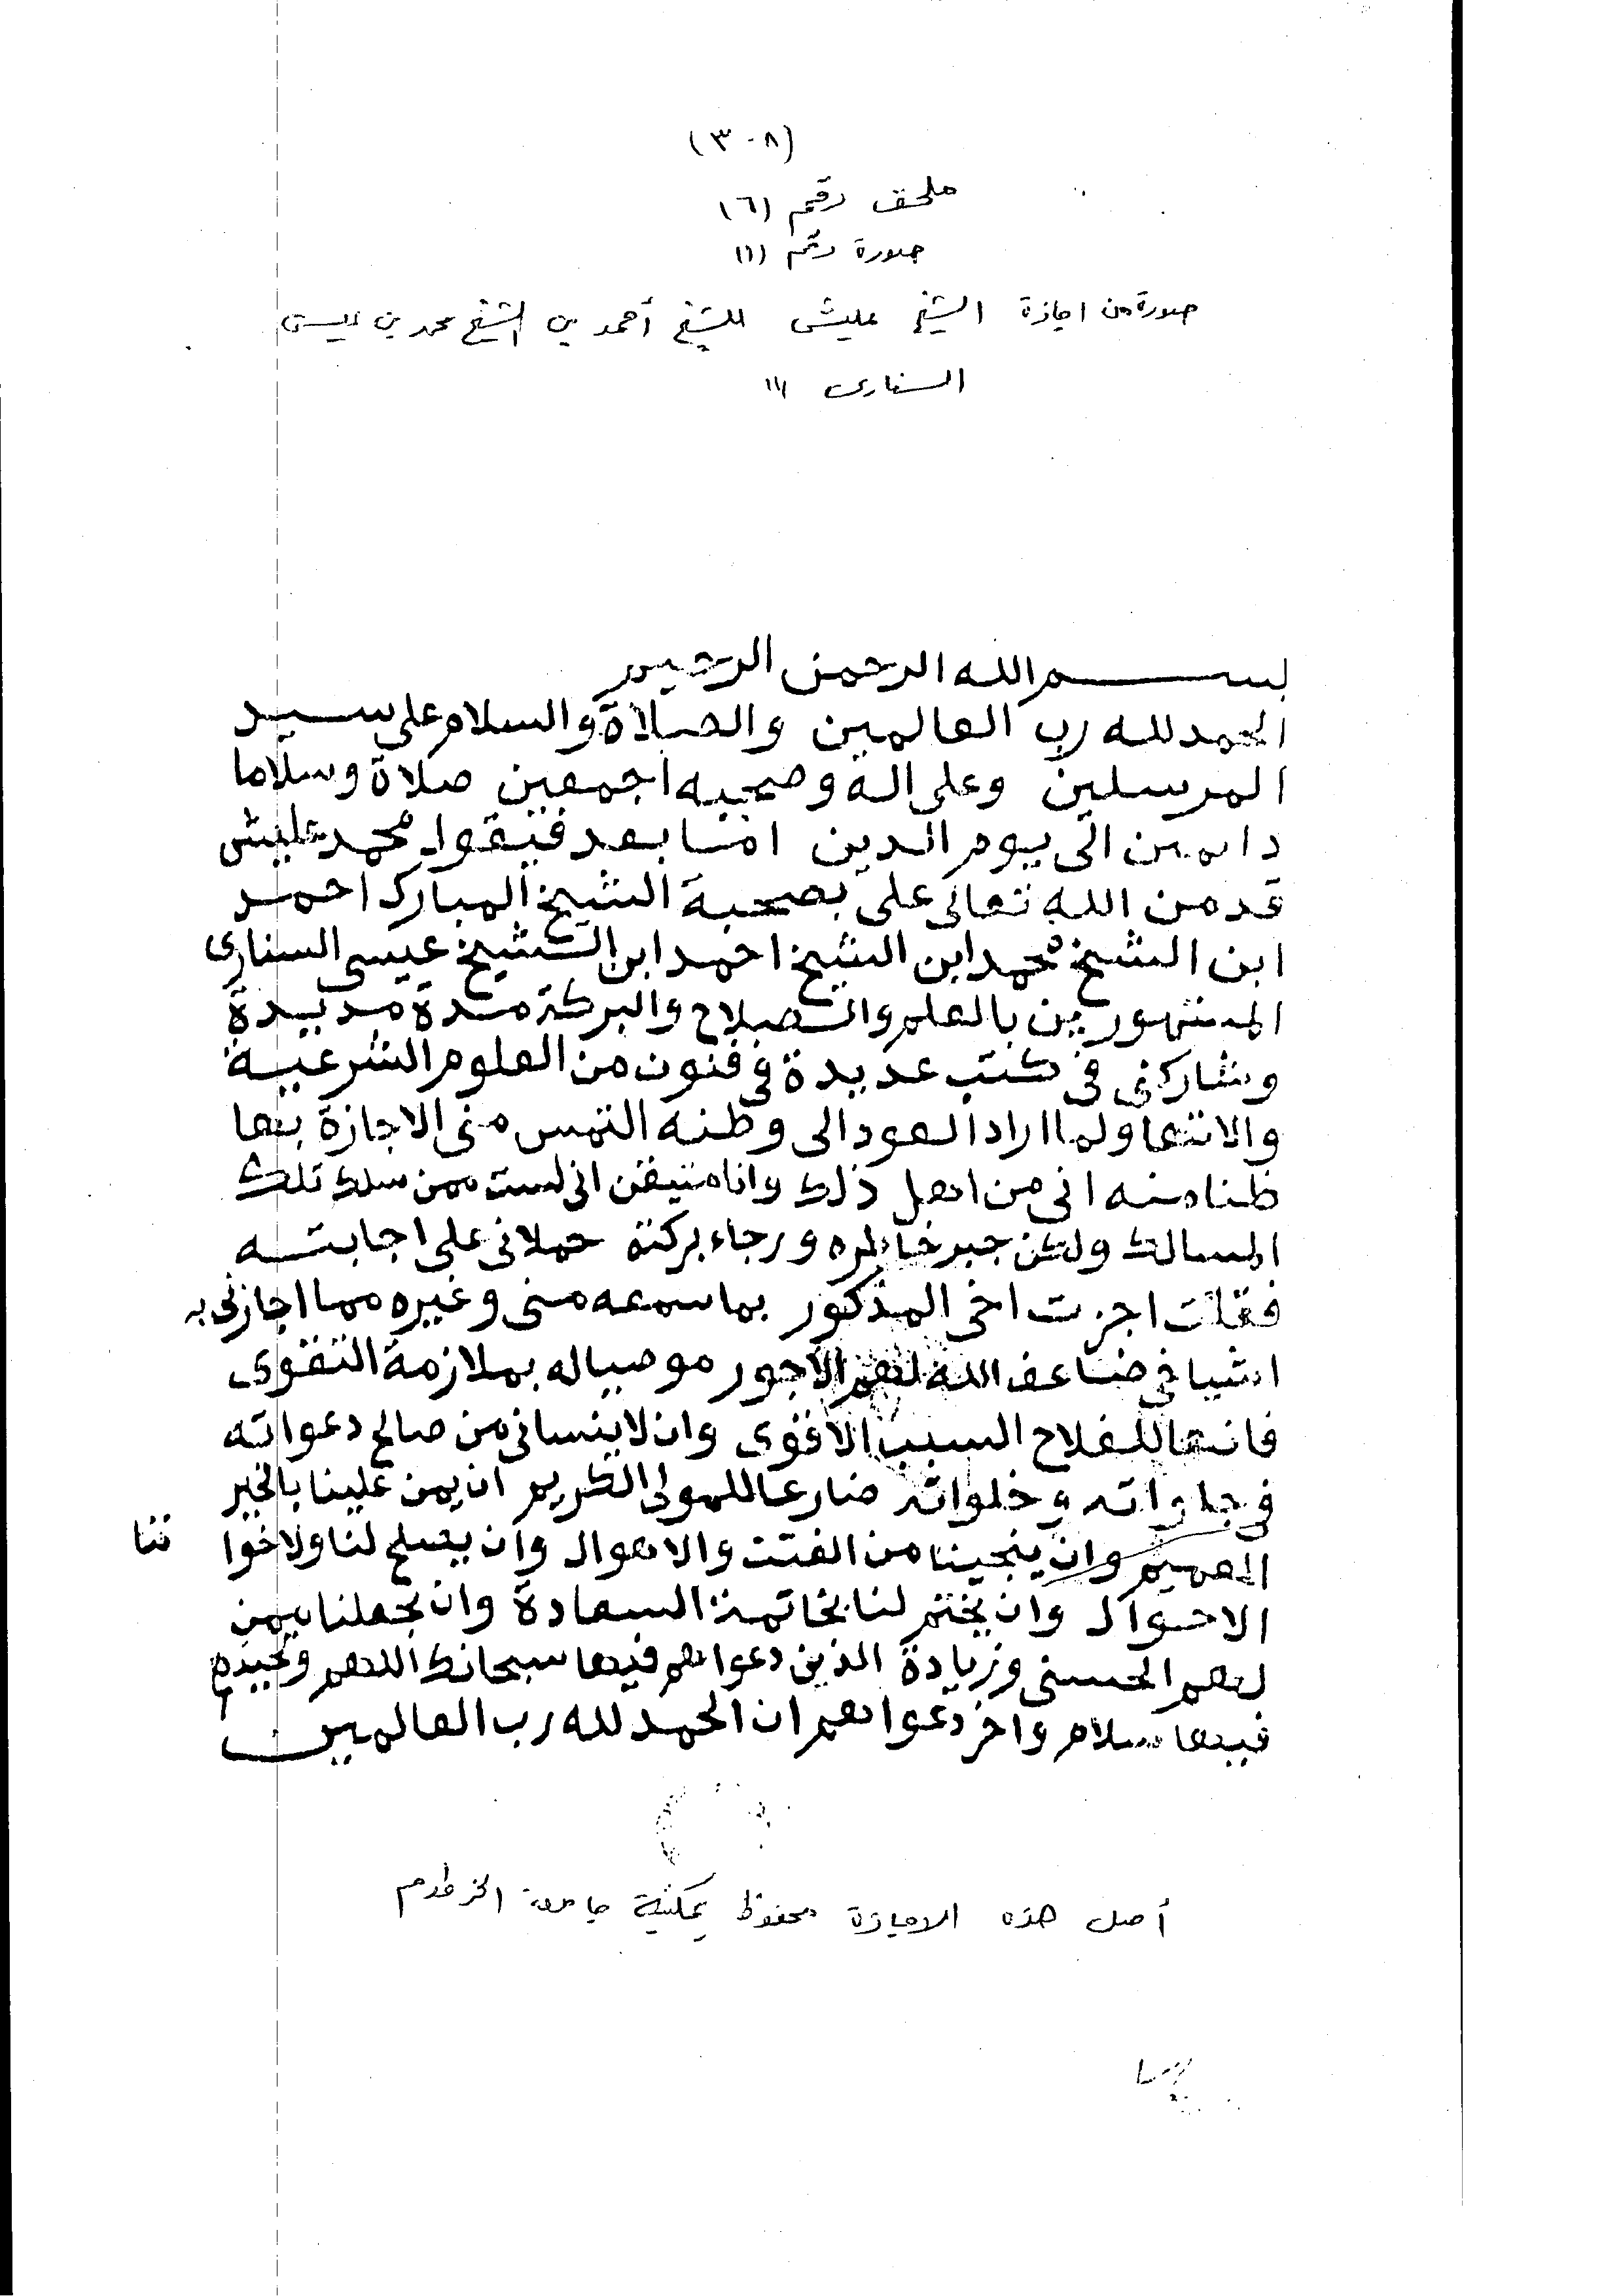 (٣٠٨)
ملحق رقم (٦)
صورة رقم (١)
صورة من اجازة الشيخ عليش للشيخ أحمد بن الشيخ محمد بن عيسى
السنارى (١)
بسم الله الرحمن الرحيم
الحمد لله رب العالمين والصلاة والسلام على سيد
المرسلين وعلى اله وصحبه اجمعين صلاة وسلاما
دائمين الى يوم الدين اما بعد فيقول محمد عليش
قد من الله تعالى على بصحبة الشيخ المبارك احمد
ابن الشيخ محمد ابن الشيخ احمد ابن الشيخ عيسى السنارى
المشهورين بالعلم والصلاح والبركة مدة مديدة
وشاركنى فى كتب عديدة فى فنون من العلوم الشرعية
والاتها ولما اراد العود الى وطنه التمس منى الاجازة بها
ظنا منه انى من اهل ذلك وانا متيقن انى لست ممن سلك تلك
المسالك ولكن جبر خاطره ورجاء بركته حملانى على اجابته
فقلت اجزت اخى المذكور بما سمعه منى وغيره مما اجازنى به
اشياخى ضاعف الله لهم الاجور موصيا له بملازمة التقوى
فانها للفلاح السبب الاقوى وان لا ينسانى من صالح دعواته
فى جلواته وخلواته ضارعا للمولى الكريم ان يمن علينا بالخير
العميم وان ينجينا من الفتن والاهوال وان يصلح لنا ولاخواننا
الاحوال وان يختم لنا بخاتمة السعادة وان يجعلنا ممن
لهم الحسنى وزيادة الذين دعواهم فيها سبحانك اللهم وتحيتهم
فيها سلام واخر دعواهم ان الحمد لله رب العالمين
أصل هذه الاجازة محفوظ بمكتبة جامعة الخرطوم